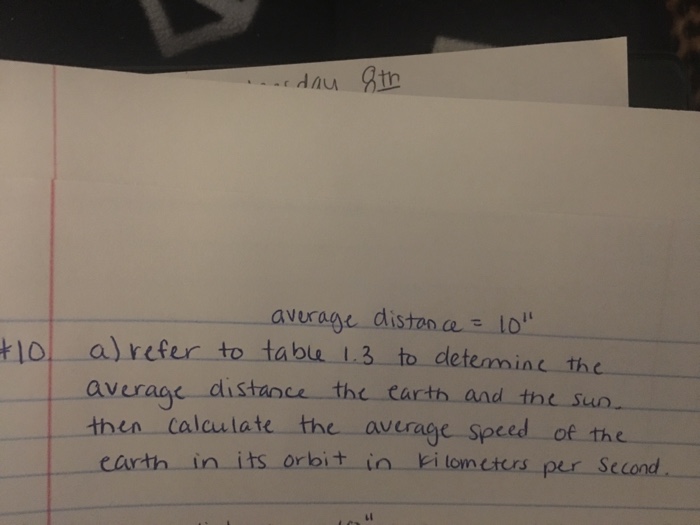 8th
average distance = 10¹¹
#10 a) refer to table 1.3 to determine the
average distance the earth and the sun.
then calculate the average speed of the
earth in its orbit in kilometers per second.